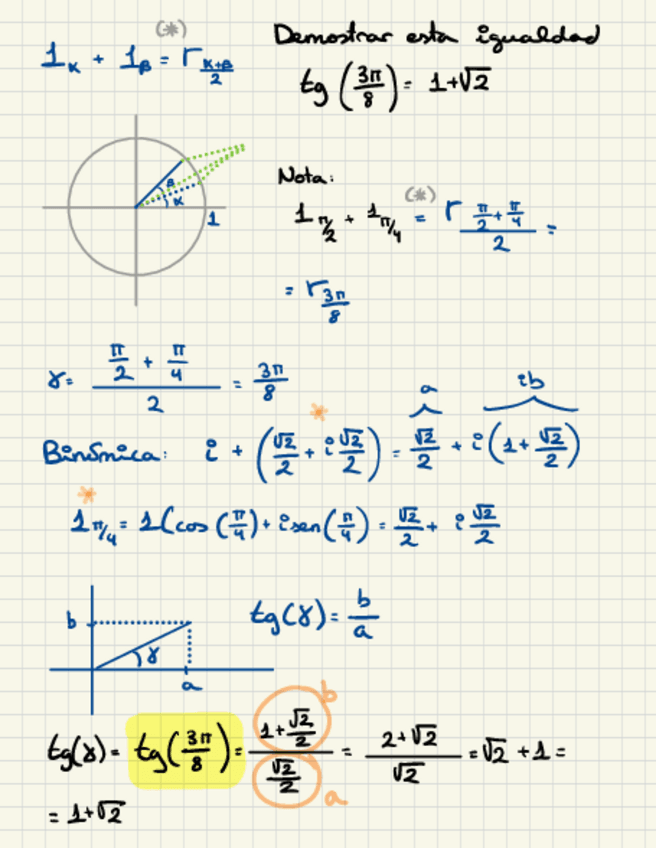 (*)
1_α + 1_β = r_{(α+β)/2}
Demostrar esta igualdad
tg (3π/8) = 1+√2
β
α
1
Nota:
(*)
1_{π/2} + 1_{π/4} = r_{(π/2 + π/4)/2} =
= r_{3π/8}
γ = (π/2 + π/4)/2 = 3π/8
* a ib
Binómica: i + (√2/2 + i √2/2) = √2/2 + i (1 + √2/2)
*
1_{π/4} = 1(cos (π/4) + i sen (π/4) = √2/2 + i √2/2
b
γ
a
tg(γ) = b/a
b
tg(γ) = tg(3π/8) = (1+√2/2)/(√2/2) = (2+√2)/√2 = √2 + 1 =
a
= 1+√2